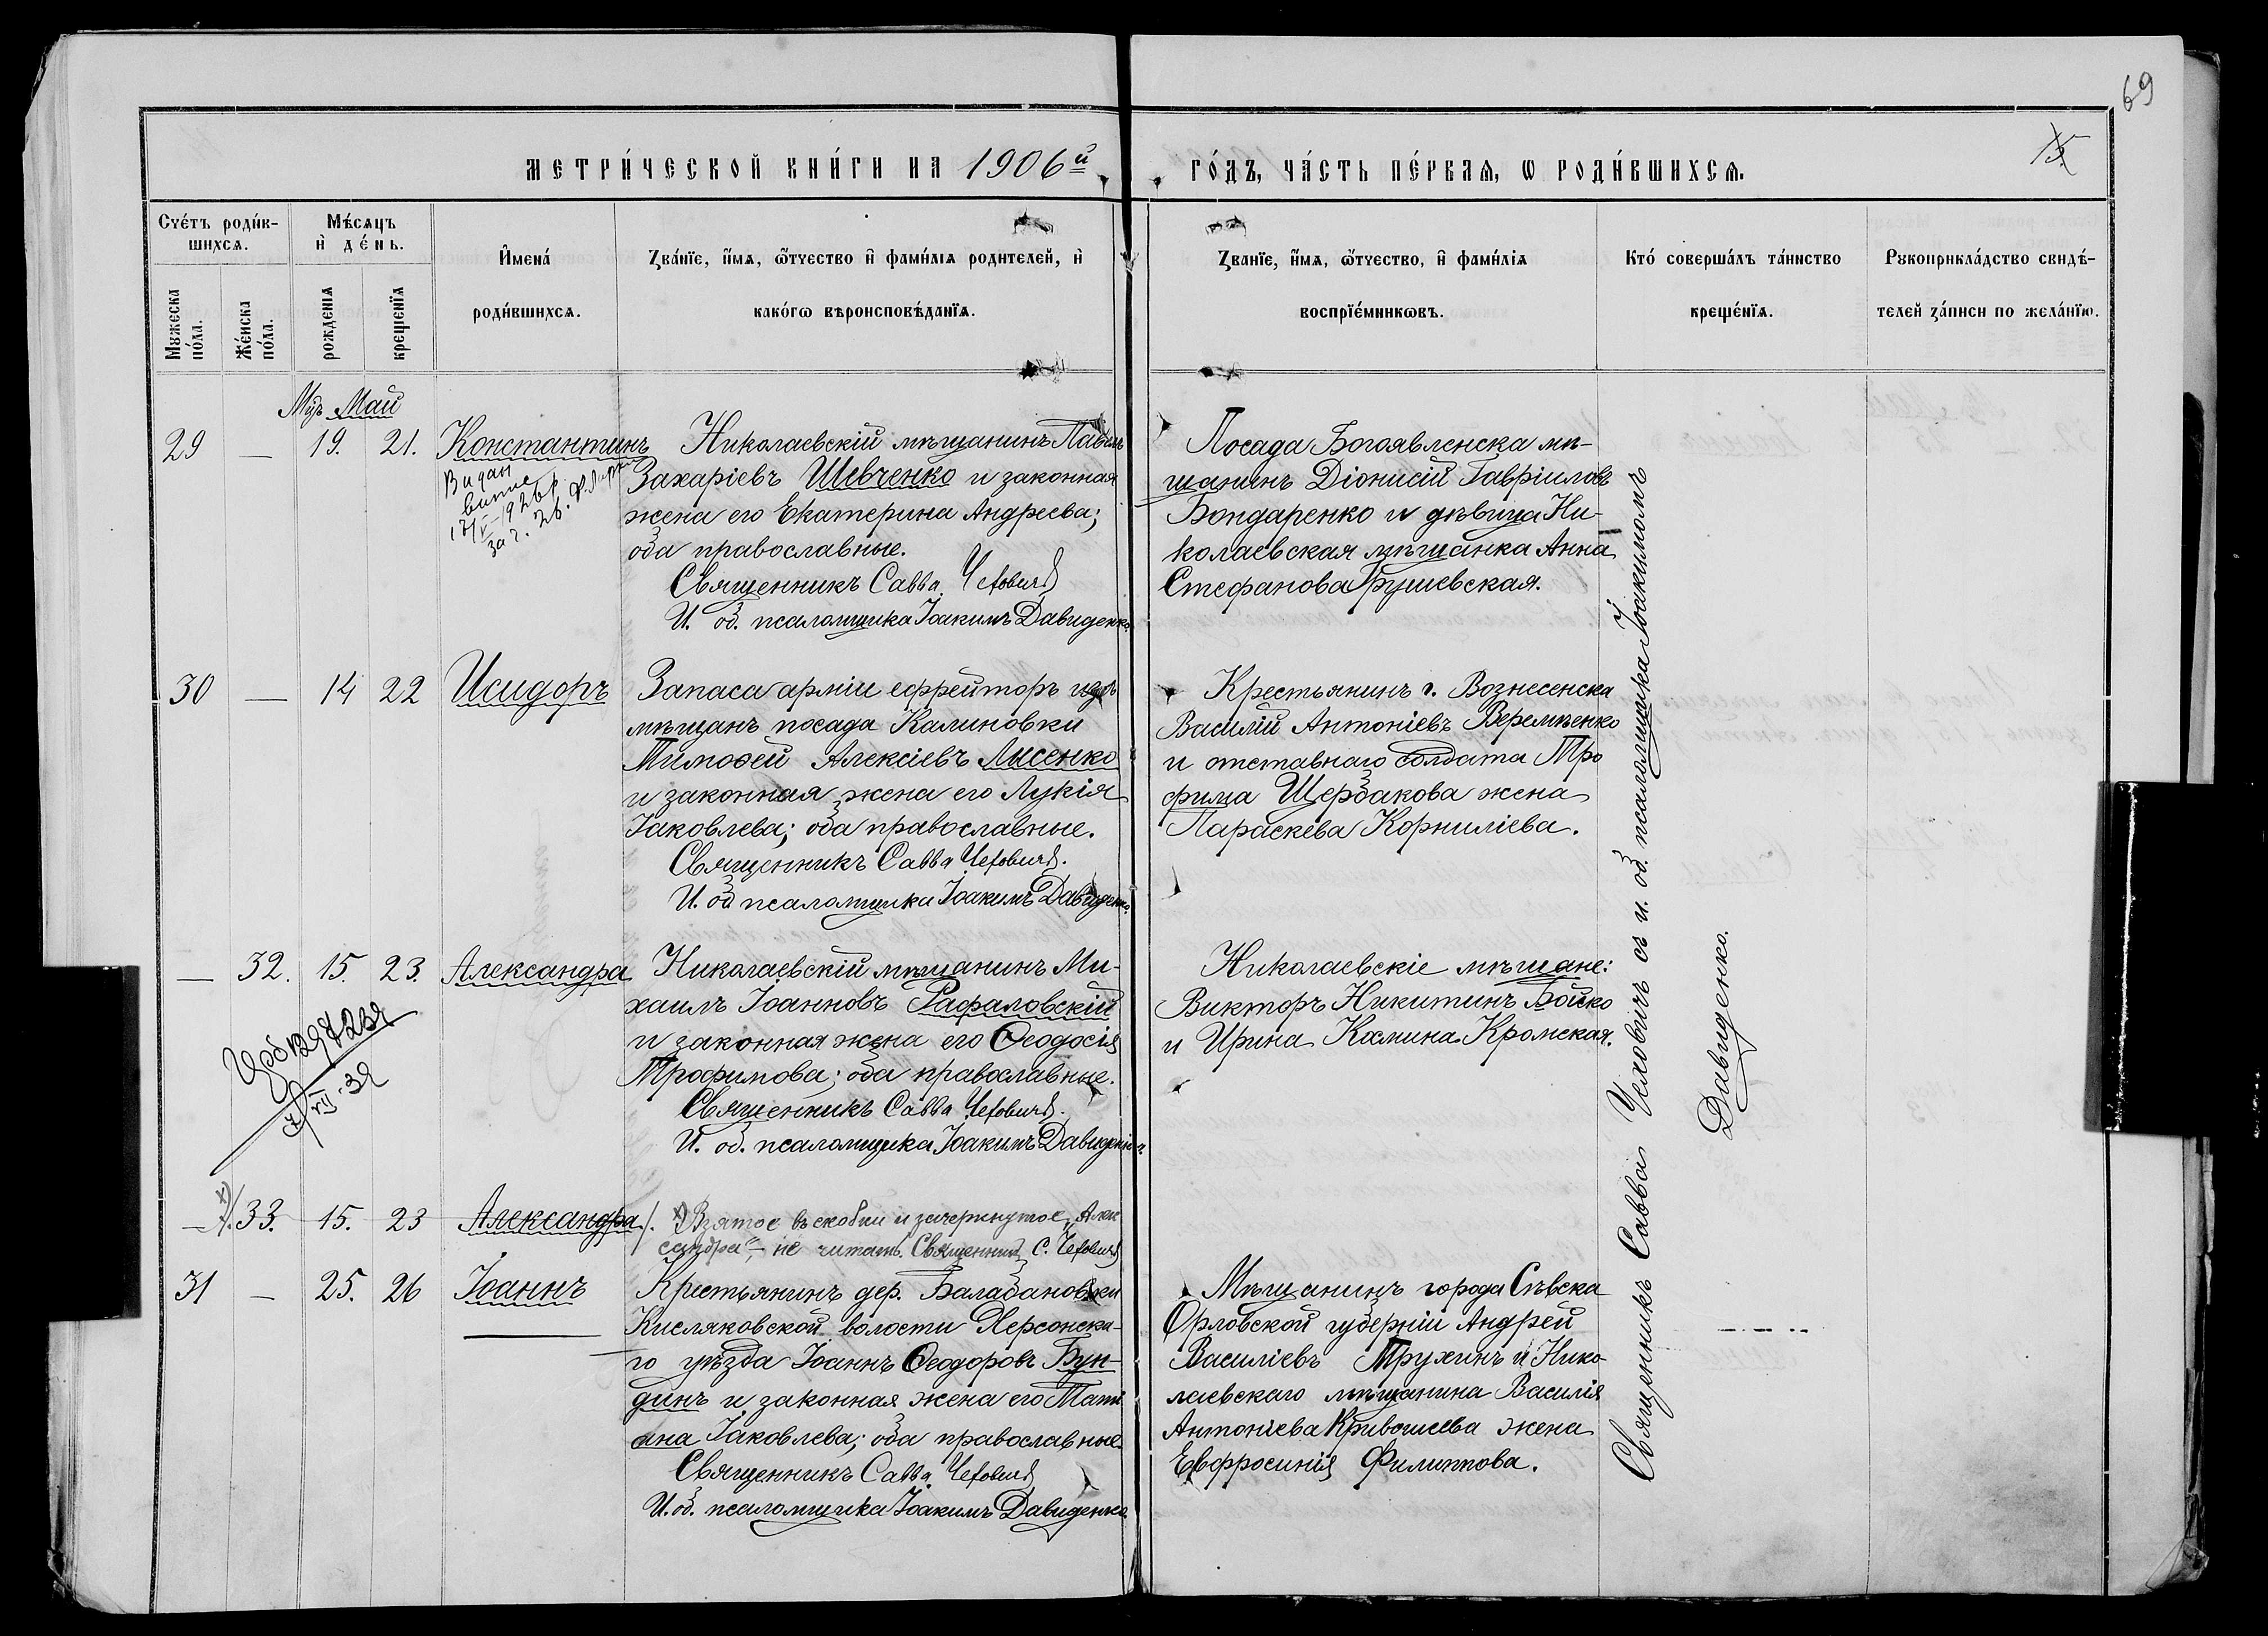 69
МЕТРИ́ЧЕСКОЙ КНИ́ГИ НА 1906й ГО́ДЪ, ЧА́СТЬ ПЕ́РВАѦ, Ѡ РОДИ́ВШИХСѦ.
Сче́тъ роди́в-
шихсѧ.
Мꙋжеска
по́ла.
Же́нска
по́ла.
Мѣ́сѧцъ
и҆ де́нь.
рожденїѧ
крещенїѧ
И҆мена́
роди́вшихсѧ.
Зва́нїе, и҆́мѧ, ѻ҆́тчество и҆ фами́лїѧ родителей, и҆
како́гѡ вѣроисповѣ́данїѧ.
Званїе, и҆́мѧ, ѻ҆́тчество, и҆ фами́лїѧ
воспрїе́мникѡвъ.
Кто́ соверша́лъ та́инство
креще́нїѧ.
Рꙋкоприкла́дство свидѣ́-
телей за́писи по жела́нїю.
Мцъ Май
29 — 19. 21. Константинъ
Видан
витяг
17/V–1926 р.
за ч. 26.
Николаевскій мѣщанинъ Павелъ
Захаріевъ Шевченко и законная
жена его Екатерина Андреева;
оба православные.
Священникъ Савва Человичъ
И. об. псаломщика Іоакимъ Давиденко.
Посада Богоявленска мѣ-
щанинъ Діонисій Гавріиловъ
Бондаренко и дѣвица Ни-
колаевская мѣщанка Анна
Стефанова Грушевская.
30 — 14 22 Исидоръ
Запаса арміи ефрейторъ изъ
мѣщанъ посада Калиновки
Тимоѳей Алексіевъ Лисенко
и законная жена его Лукія
Іаковлева; оба православные.
Священникъ Савва Человичъ.
И. об псаломщика Іоакимъ Давиденко.
Крестьянинъ г. Вознесенска
Василій Антоніевъ Веремѣенко
и отставнаго солдата Тро
фима Щербакова жена
Параскева Корниліева.
— 32. 15. 23. Александра
Николаевскій мѣщанинъ Ми-
хаилъ Іоанновъ Рафаловскій
и законная жена его Ѳеодосія
Трофимова; оба православные.
Священникъ Савва Человичъ.
И. об. псаломщика Іоакимъ Давиденко.
Николаевскіе мѣщане:
Викторъ Никитинъ Бойко
и Ирина Космина Кромская.
— х) 33. 15. 23 Александра
х) Взятое въ скобки и зачеркнутое „Алек
сандра" – не читать. Священникъ С. Человичъ
31 — 25. 26 Іоаннъ
Крестьянинъ дер. Балабановки
Кисляковской волости Херсонска-
го уѣзда Іоаннъ Ѳеодоровъ Бун-
динъ и законная жена его Тати
ана Іаковлева; оба православные.
Священникъ Савва Человичъ
И. об. псаломщика Іоакимъ Давиденко.
Мѣщанинъ города Сѣвска
Орловской губерніи Андрей
Василіевъ Трухинъ и Нико-
лаевскаго мѣщанина Василія
Антоніева Кривошеева жена
Евфросинія Филиппова.
Священникъ Савва Человичъ съ и. об. псаломщика Іоакимомъ
Давиденко.